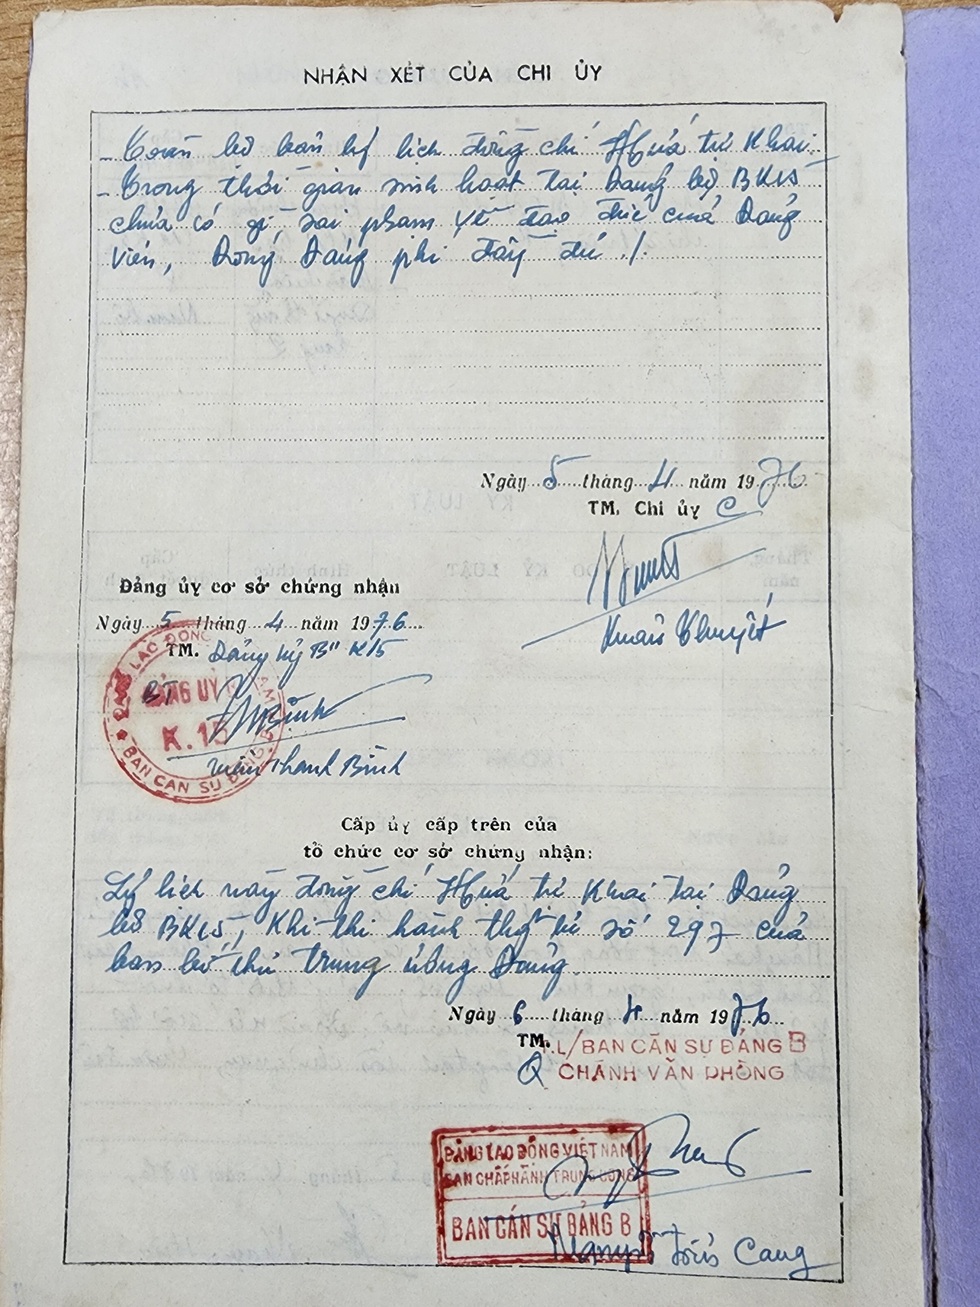 NHẬN XÉT CỦA CHI ỦY
- Toàn bộ bản lý lịch đồng chí Hứa tự Khai.
- Trong thời gian sinh hoạt tại Đảng bộ BK15
chưa có gì sai phạm về đạo đức của Đảng
viên, Đóng Đảng phí đầy đủ ./.
Ngày 5 tháng 4 năm 1976
TM. Chi ủy C
Xuân Thuyết
Đảng ủy cơ sở chứng nhận
Ngày 5 tháng 4 năm 1976
TM. Đảng ủy B K15
BT
ĐẢNG LAO ĐỘNG
ĐẢNG ỦY
K.15
BAN CÁN SỰ ĐẢNG B
Thanh Bình
Cấp ủy cấp trên của
tổ chức cơ sở chứng nhận:
Lý lịch này đồng chí Hứa tự Khai tại Đảng
bộ BK15, Khi thi hành thông tri số 297 của
ban bí thư trung ương Đảng.
Ngày 6 tháng 4 năm 1976
TM. T.L/BAN CÁN SỰ ĐẢNG B
Q CHÁNH VĂN PHÒNG
ĐẢNG LAO ĐỘNG VIỆT NAM
BAN CHẤP HÀNH TRUNG ƯƠNG
BAN CÁN SỰ ĐẢNG B
Cang